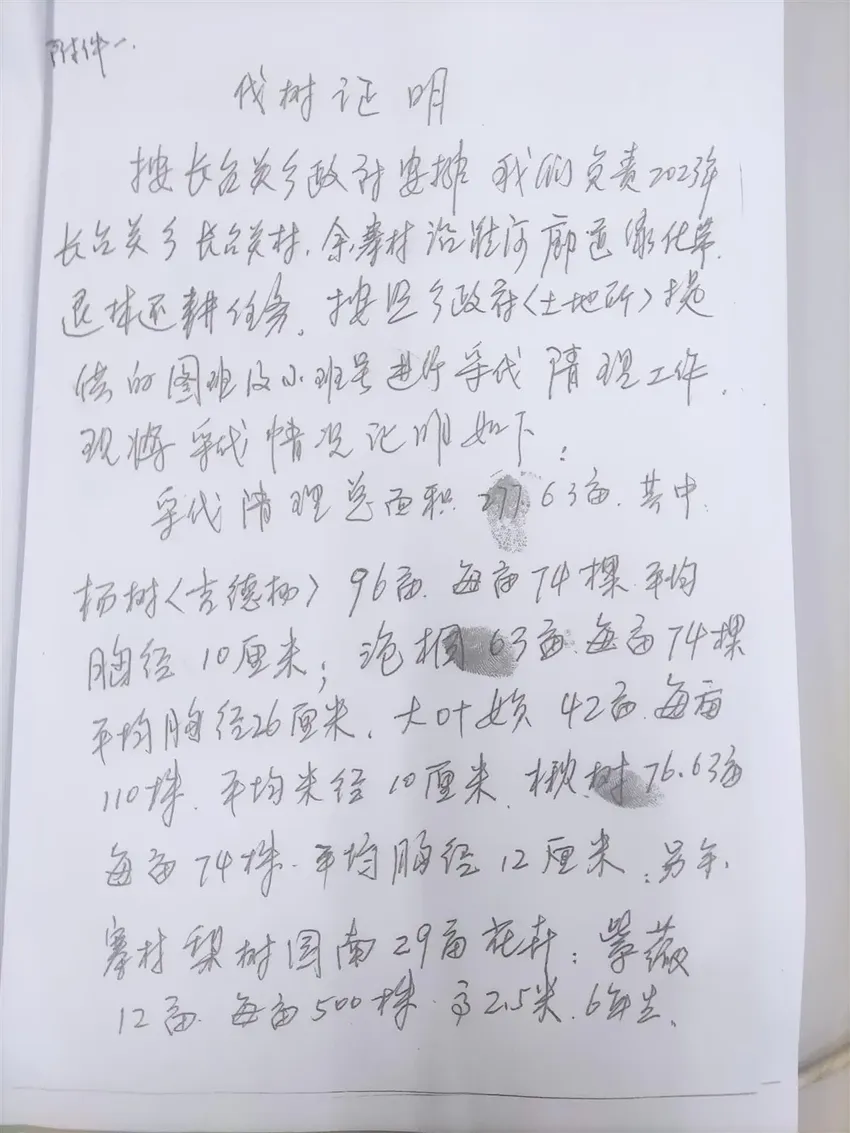 附件一.
伐树证明
按长台关乡政府安排 我们负责2023年
长台关乡长台关村.余寨村沿淮河廊道绿化带.
退林还耕任务.按照乡政府〈土地所〉提
供的图班及小班号进行采伐清理工作.
现将采伐情况证明如下:
采伐清理总面积277.63亩.其中.
杨树〈吉德杨〉96亩.每亩74棵.平均
胸径10厘米;泡桐63亩.每亩74棵
平均胸径26厘米.大叶女贞42亩.每亩
110株.平均米径10厘米.楸树76.63亩
每亩74株.平均胸径12厘米.另余.
寨村梨树园南29亩花卉:紫薇
12亩.每亩500株.高2.5米.6年生.